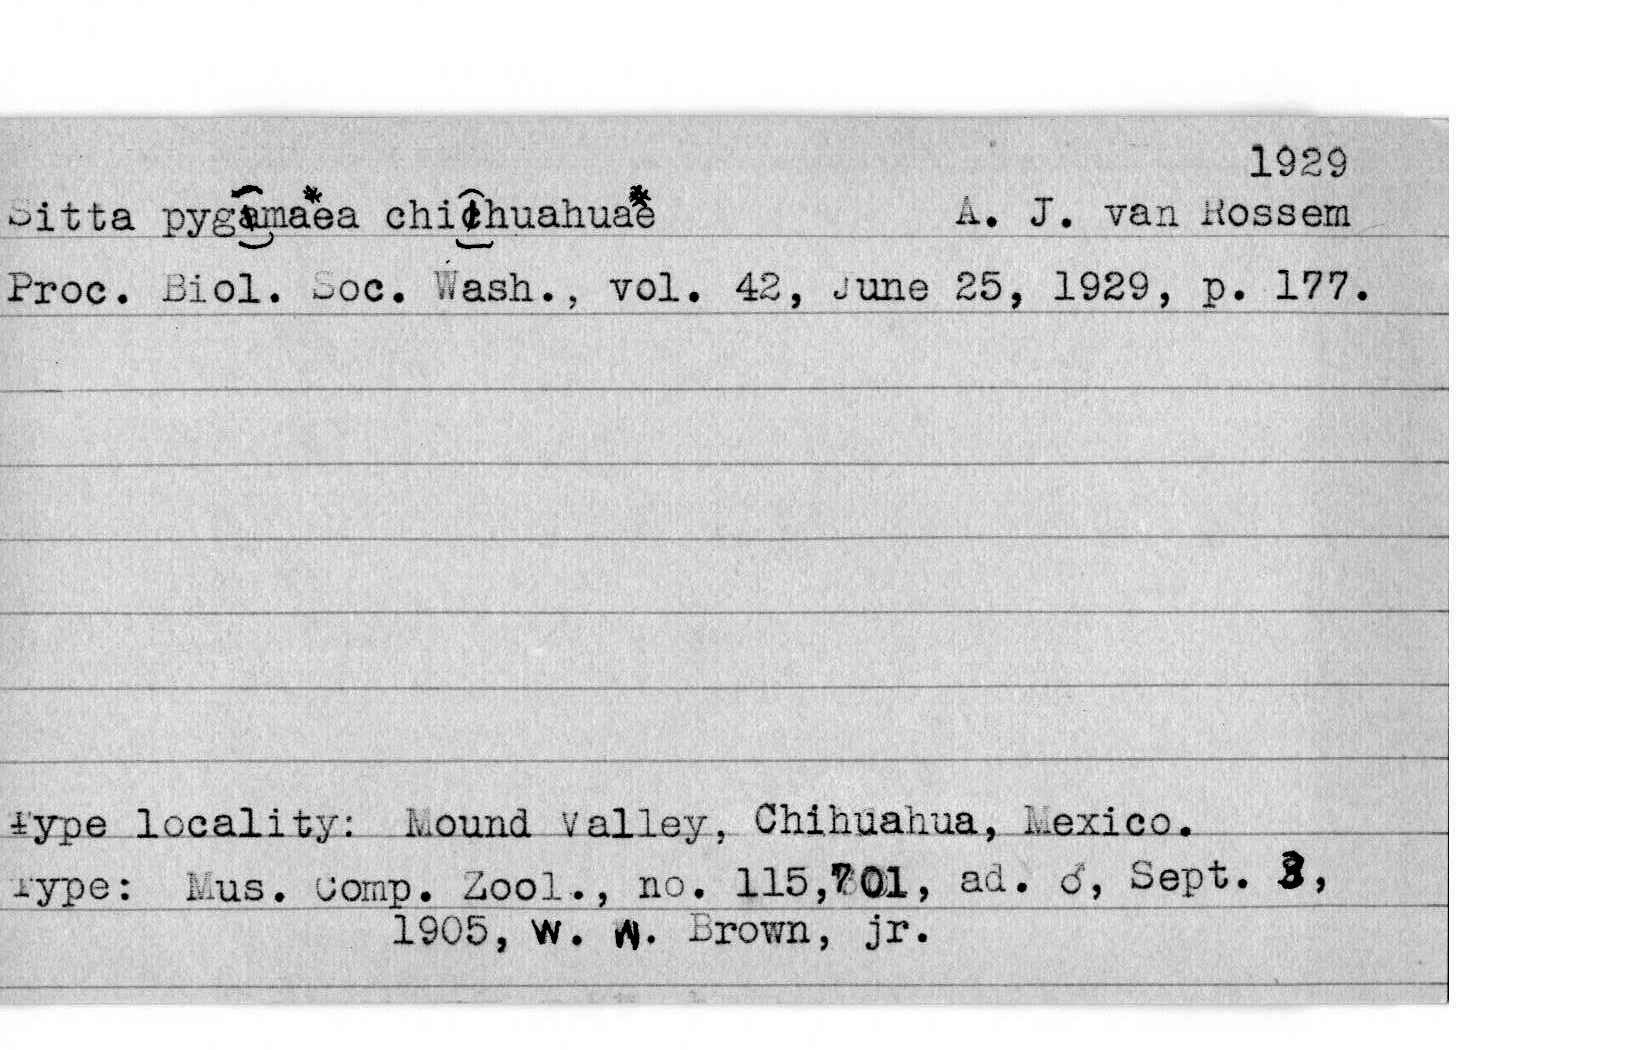 1929
Sitta pygmaea chihuahuae A. J. van Rossem
Proc. Biol. Soc. Wash., vol. 42, June 25, 1929, p. 177.
Type locality: Mound Valley, Chihuahua, Mexico.
Type: Mus. Comp. Zool., no. 115,701, ad. ♂, Sept. 3,
1905, W. W. Brown, jr.